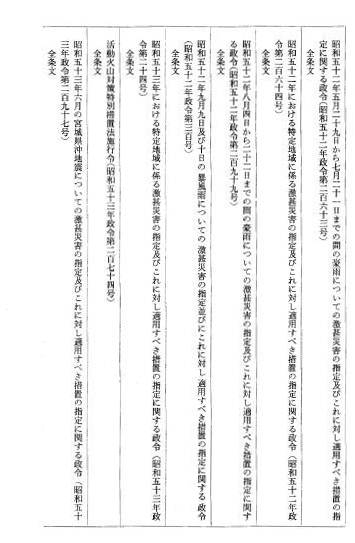 昭和五十二年五月二十九日から七月二十一日までの間の豪雨についての激甚災害の指定及びこれに対し適用すべき措置の指
定に関する政令(昭和五十二年政令第二百六十三号)
全条文
昭和五十二年における特定地域に係る激甚災害の指定及びこれに対し適用すべき措置の指定に関する政令(昭和五十二年政
令第二百六十四号)
全条文
昭和五十二年八月四日から二十二日までの間の豪雨についての激甚災害の指定及びこれに対し適用すべき措置の指定に関す
る政令(昭和五十二年政令第二百九十九号)
全条文
昭和五十二年九月九日及び十日の暴風雨についての激甚災害の指定並びにこれに対し適用すべき措置の指定に関する政令
(昭和五十二年政令第三百号)
全条文
昭和五十三年における特定地域に係る激甚災害の指定及びこれに対し適用すべき措置の指定に関する政令(昭和五十三年政
令第二十四号)
全条文
活動火山対策特別措置法施行令(昭和五十三年政令第二百七十四号)
全条文
昭和五十三年六月の宮城県沖地震についての激甚災害の指定及びこれに対し適用すべき措置の指定に関する政令(昭和五十
三年政令第二百九十七号)
全条文